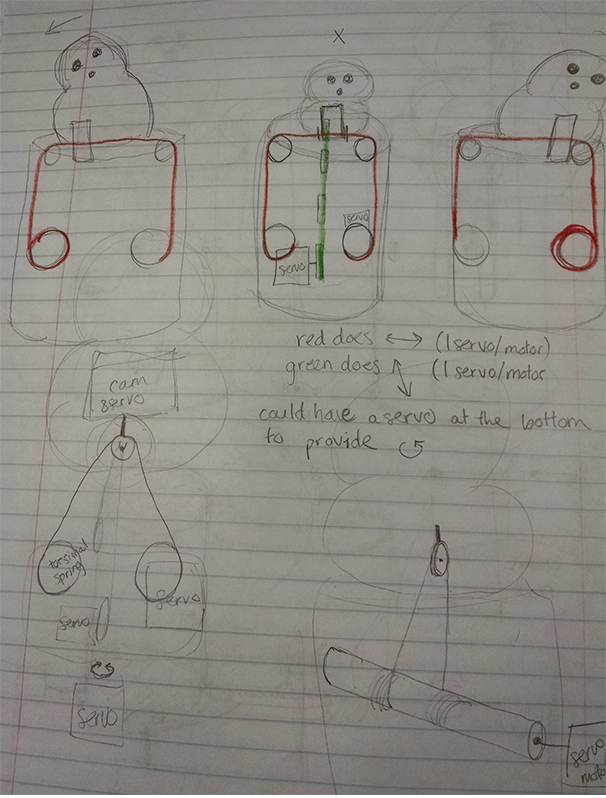 X
servo
servo
red does ↔ (1 servo/motor)
green does ↕ (1 servo/motor
could have a servo at the bottom
to provide ↺
cam
servo
torsional
spring
servo
servo
servo
servo
motor